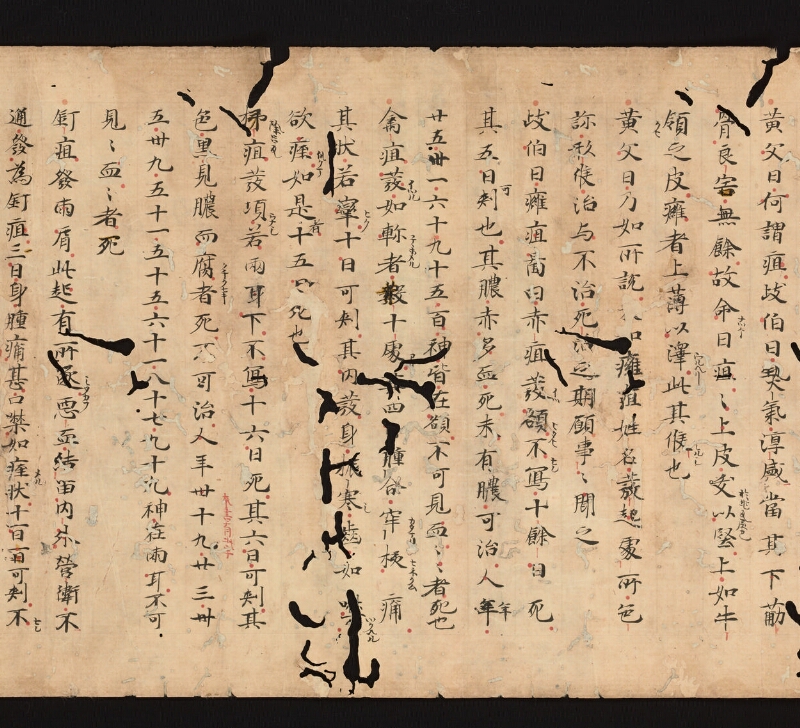 黄父曰何謂疽歧伯曰熱氣淳盛當其下筋
骨良害無餘故命曰疽〻上皮夭以堅上如牛
領之皮癰者上薄以澤此其候也
黄父曰乃如所説 癰疽姓名發起處所色
診形候治与不治死活之期願事〻聞之
歧伯曰癰疽 曰赤疽發額不寫十餘日死
其五日可刾也其膿赤多血死未有膿可治人年
廿五卅一六十九十五百神皆在額不可見血〻者死也
禽疽發如軫者 十處 四 腫合牢 核痛
其状若攣十日可刾其内發身 寒齒如
欲痓如是十五日死也
疽發項若兩耳下不寫十六日死其六日可刾其
色黒見膿而腐者死不可治人年卅十九廿三卅
五卅九五十一五十五六十一八十七九十九神在兩耳不可
見〻血〻者死
釘疽發兩肩此起有所逐惡血結留内外營衛不
通發為釘疽三日身腫痛甚口禁如痓状十一日可刾不